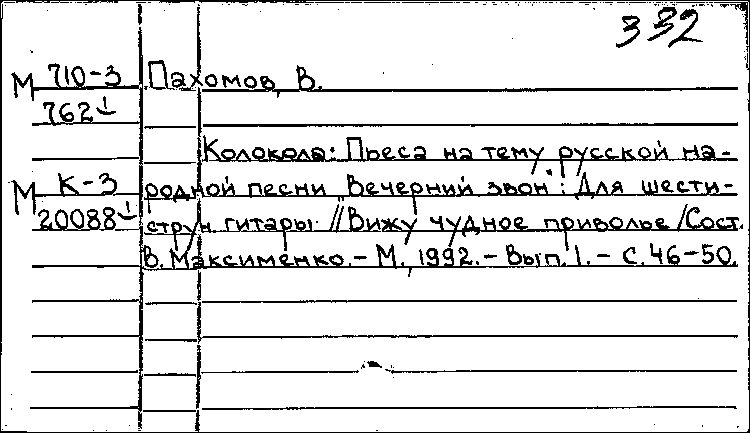 332
М 710-3 Пахомов, В.
762↓
Колокола: Пьеса на тему русской на-
М К-3 родной песни „Вечерний звон": Для шести-
20088↓ струн. гитары. // Вижу чудное приволье / Сост.
В. Максименко. - М., 1992. - Вып. 1. - С. 46-50.